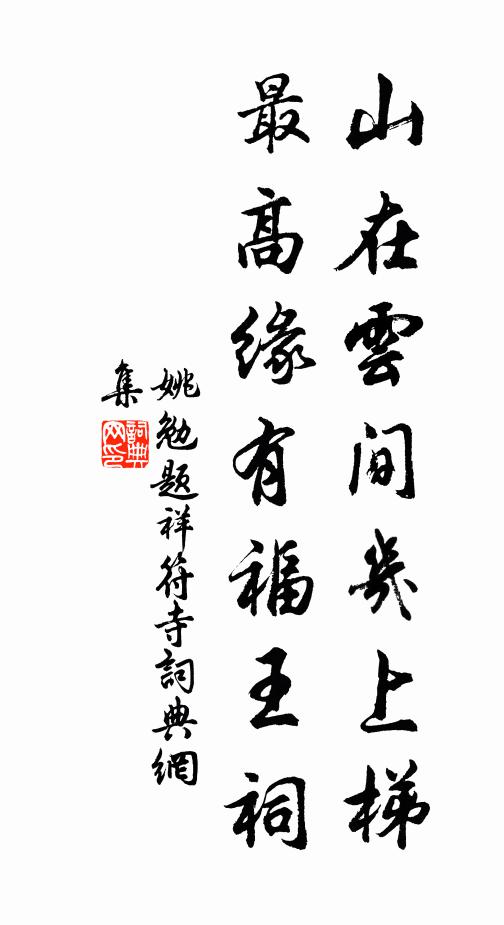 山在雲間幾上梯
最高緣有福王祠
姚勉題祥符寺詞典網
集
詞典
网印